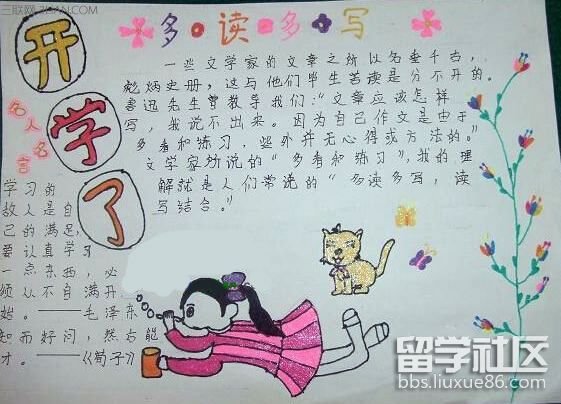 三联网 3LIAN.COM
开学了
多·读·多·写
一些文学家的文章之所以名垂千古，
彪炳史册，这与他们毕生苦读是分不开的。
鲁迅先生曾教导我们：“文章应该怎样
写，我说不出来。因为自己作文是由于
多看和练习，些外并无心得或方法的。”
文学家所说的“多看和练习”，我的理
解就是人们常说的“多读多写，读
写结合。”
名人名言
学习的
敌人是自
己的满足，
要认真学习
一点东西，必
须从不自满开
始。——毛泽东
知而好问，然后能
才。——《荀子》
留学社区
bbs.liuxue86.com